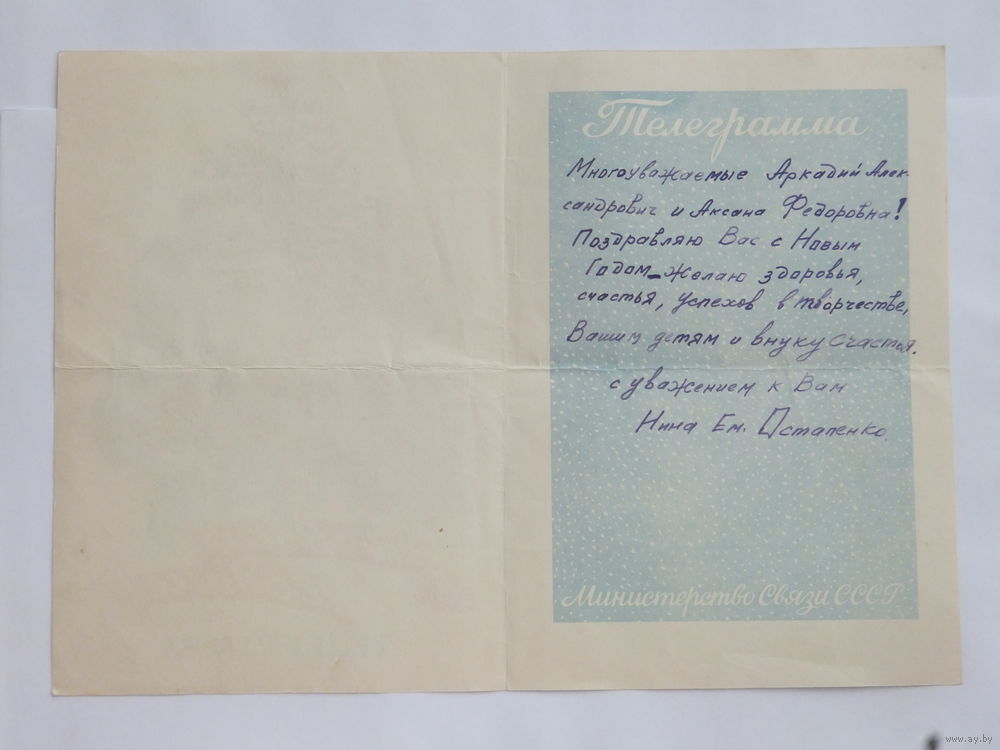 Телеграмма
Многоуважаемые Аркадий Алек-
сандрович и Аксана Федоровна!
Поздравляю Вас с Новым
Годом - желаю здоровья,
счастья, успехов в творчестве,
Вашим детям и внуку счастья.
с уважением к Вам
Нина Ем. Остапенко.
Министерство Связи СССР
www.ay.by